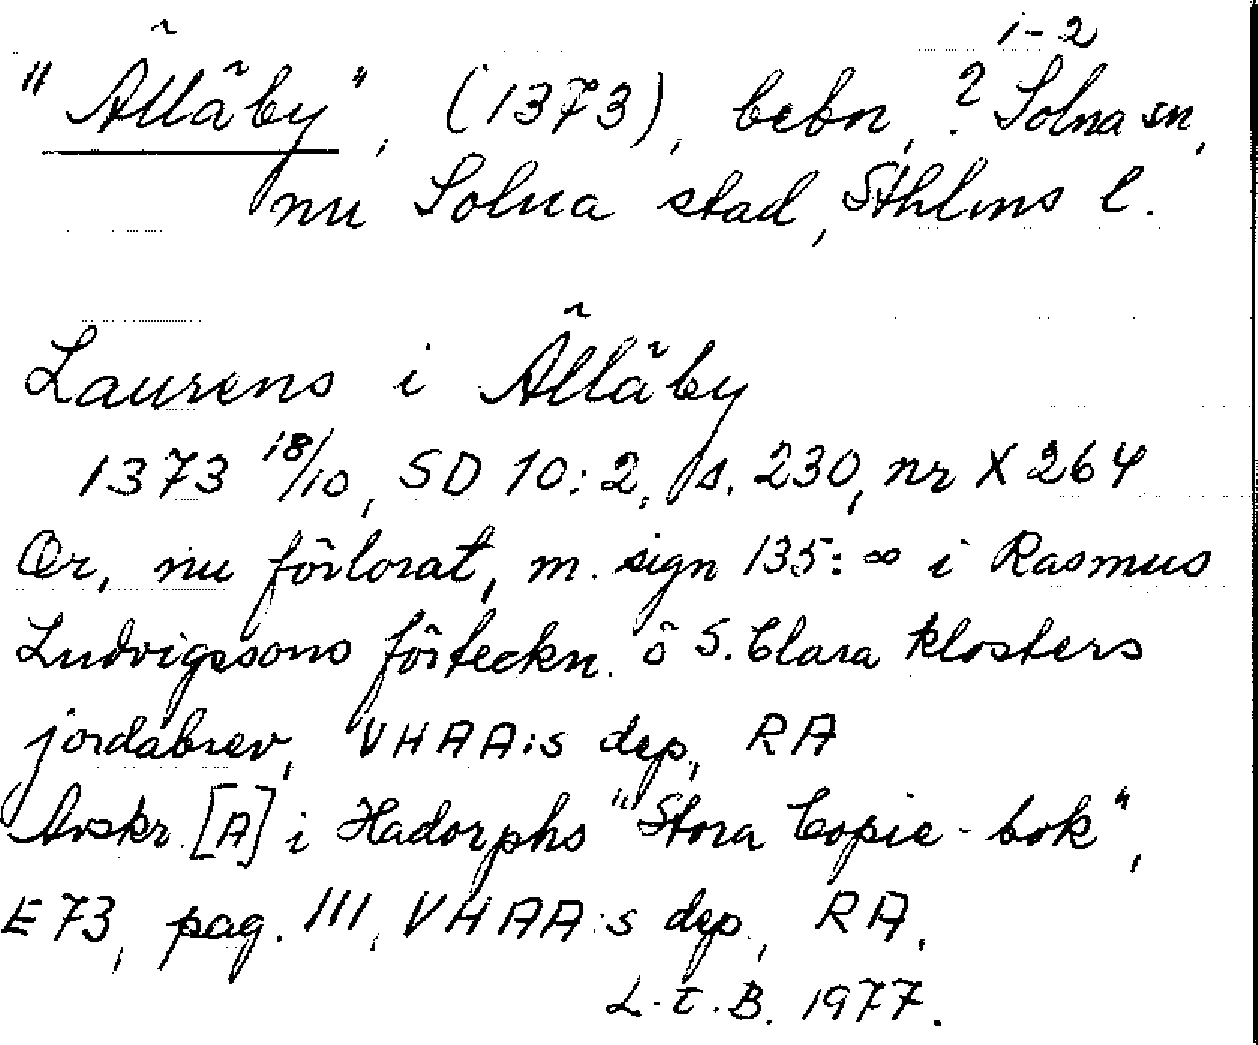 1-2
"Ållåby", (1373), bebn, ? Solna sn,
nu Solna stad, Sthlms l.
Laurens i Ållåby
1373 18/10, SD 10:2, s. 230, nr X 264
Or, nu förlorat, m. sign 135: ∞ i Rasmus
Ludvigssons förteckn. ö S. Clara klosters
jordabrev, VHAA:s dep, RA
Avskr. [A] i Hadorphs "Stora Copie-bok",
E 73, pag. 111, VHAA:s dep, RA.
L.t.B. 1977.